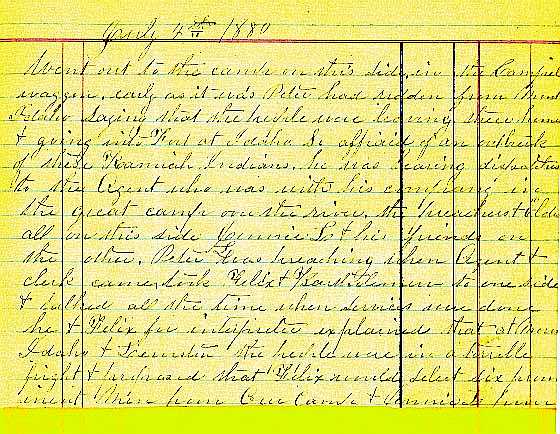 July 4th 1880
Went out to the camp on this side, in the Camping
waggon, early as it was Pete had ridden from Mount
Idaho saying that the people were leaving their homes
& going into Fort at Idaho So affraid of an outbreak
of these Kamiah Indians. he was bearing dispatches
to the Agent who was with his company in
the great camp over the river, the Preachers & Elders
all on this side Connie L. & his friends on
the other. Pete L was preaching when Agent &
clerk came, took Felix & Bartholemew to one side
& talked all the time when services were done
he & Felix for interpreter explained that at Mount
Idaho & the people were in a terrible
fright & proposed that Felix would select six prom
inent Men from One Camp & from